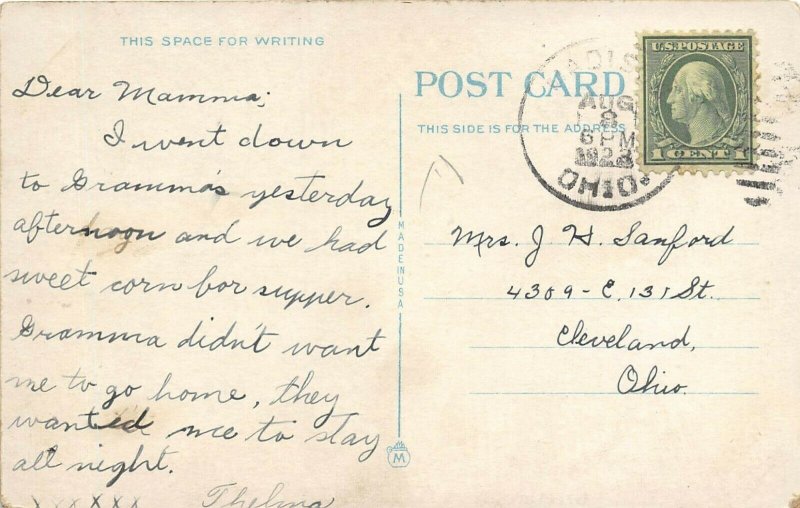 THIS SPACE FOR WRITING
Dear Mamma;
I went down
to Gramma's yesterday
afternoon and we had
sweet corn for supper.
Gramma didn't want
me to go home, they
wanted me to stay
all night.
XXXXX
Thelma
MADE IN USA
M
POST CARD
THIS SIDE IS FOR THE ADDRESS
AUG
8
6 PM
OHIO.
U.S. POSTAGE
1 CENT 1
Mrs. J H. Sanford
4309 - E. 131 St.
Cleveland,
Ohio.